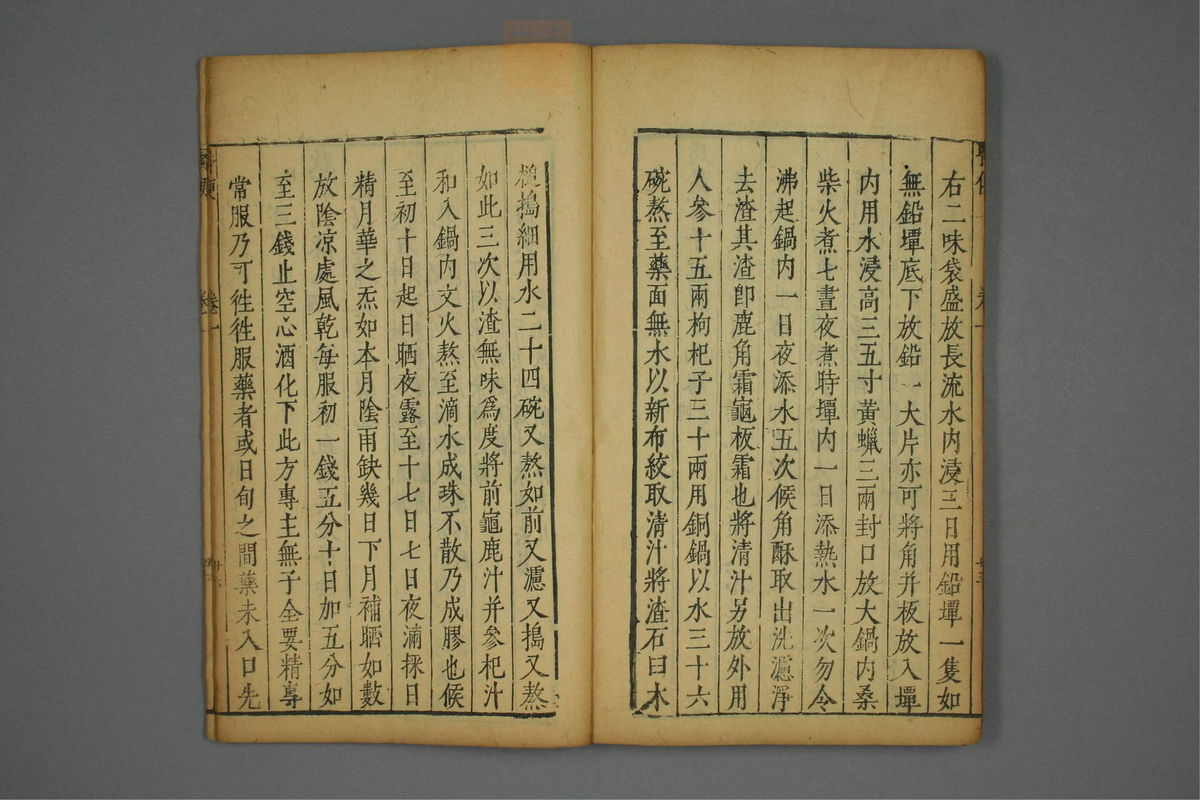 右二味袋盛放長流水內浸三日用鉛壜一隻如
無鉛壜底下放鉛一大片亦可將角并板放入壜
内用水浸高三五寸黃蠟三兩封口放大鍋内桑
柴火煮七晝夜煮時壜内一日添熱水一次勿令
沸起鍋内一日夜添水五次候角酥取出洗濾淨
去渣其渣卽鹿角霜龜板霜也將清汁另放外用
人參十五兩枸杞子三十兩用銅鍋以水三十六
碗熬至藥面無水以新布絞取清汁將渣石臼木
槌搗細用水二十四碗又熬如前又濾又搗又熬
如此三次以渣無味爲度將前龜鹿汁并參杞汁
和入鍋内文火熬至滴水成珠不散乃成膠也候
至初十日起日晒夜露至十七日七日夜滿採日
精月華之炁如本月陰雨缺幾日下月補晒如數
放陰凉處風乾每服初一錢五分十日加五分如
至三錢止空心酒化下此方專主無子全要精專
常服乃可徃徃服藥者或日旬之間藥未入口先
卷一